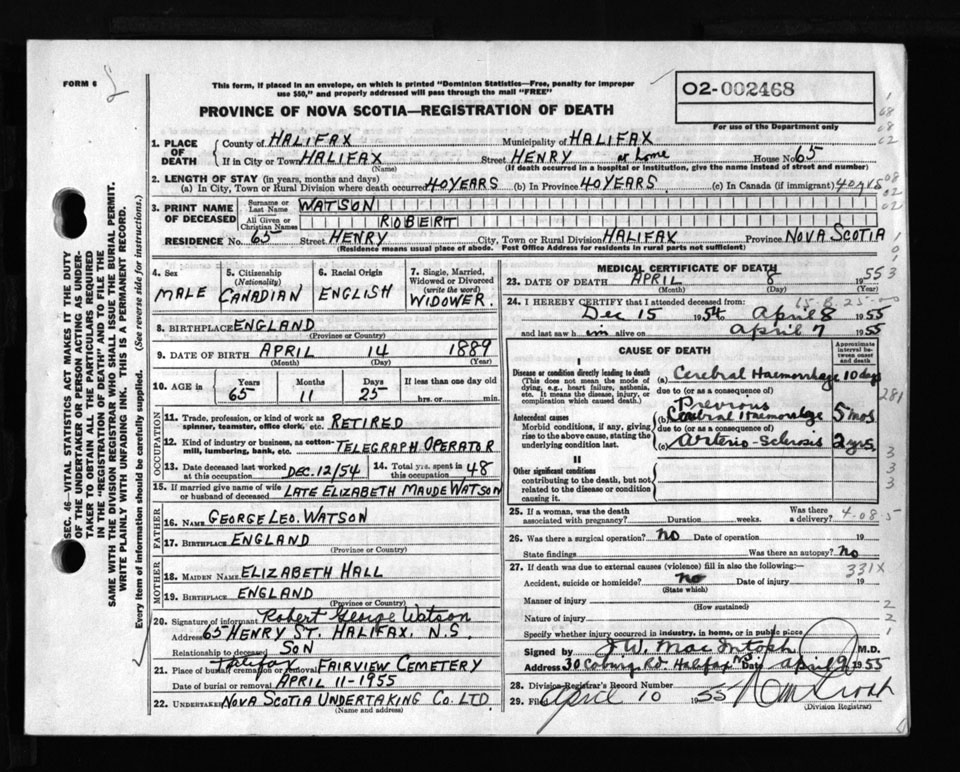 FORM 6
This form, if placed in an envelope, on which is printed "Dominion Statistics—Free, penalty for improper
use $50," and properly addressed will pass through the mail "FREE"
PROVINCE OF NOVA SCOTIA—REGISTRATION OF DEATH
02-002468
For use of the Department only
SEC. 46—VITAL STATISTICS ACT MAKES IT THE DUTY
OF THE UNDERTAKER OR PERSON ACTING AS UNDER-
TAKER TO OBTAIN ALL THE PARTICULARS REQUIRED
IN THE "REGISTRATION OF DEATH" AND TO FILE THE
SAME WITH THE DIVISION REGISTRAR WHO SHALL ISSUE THE BURIAL PERMIT.
WRITE PLAINLY WITH UNFADING INK. THIS IS A PERMANENT RECORD.
Every item of information should be carefully supplied. (See reverse side for instructions.)
1. PLACE OF DEATH
County of HALIFAX Municipality of HALIFAX
If in City or Town HALIFAX Street HENRY at home House No 65
(Name) (If death occurred in a hospital or institution, give the name instead of street and number)
2. LENGTH OF STAY (in years, months and days)
(a) In City, Town or Rural Division where death occurred 40 YEARS (b) In Province 40 YEARS (c) In Canada (if immigrant) 40 yrs
3. PRINT NAME OF DECEASED
Surname or Last Name WATSON
All Given or Christian Names ROBERT
RESIDENCE No. 65 Street HENRY City, Town or Rural Division HALIFAX Province NOVA SCOTIA
(Residence means usual place of abode. Post Office Address for residents in rural parts not sufficient)
4. Sex MALE
5. Citizenship (Nationality) CANADIAN
6. Racial Origin ENGLISH
7. Single, Married, Widowed or Divorced (write the word) WIDOWER.
8. BIRTHPLACE ENGLAND
(Province or Country)
9. DATE OF BIRTH APRIL 14 1889
(Month) (Day) (Year)
10. AGE in Years 65 Months 11 Days 25 If less than one day old
hrs. or min.
OCCUPATION
11. Trade, profession, or kind of work as
spinner, teamster, office clerk, etc. RETIRED
12. Kind of industry or business, as cotton-
mill, lumbering, bank, etc. TELEGRAPH OPERATOR
13. Date deceased last worked
at this occupation DEC. 12/54
14. Total yrs. spent in
this occupation 48
15. If married give name of wife
or husband of deceased LATE ELIZABETH MAUDE WATSON
FATHER
16. NAME GEORGE LEO. WATSON
17. BIRTHPLACE ENGLAND
(Province or Country)
MOTHER
18. MAIDEN NAME ELIZABETH HALL
19. BIRTHPLACE ENGLAND
(Province or Country)
20. Signature of informant Robert George Watson
Address 65 HENRY ST. HALIFAX, N.S.
Relationship to deceased SON
21. Place of burial, cremation or removal Halifax FAIRVIEW CEMETERY
Date of burial or removal APRIL 11-1955
22. UNDERTAKER NOVA SCOTIA UNDERTAKING CO. LTD
(Name and address)
MEDICAL CERTIFICATE OF DEATH
23. DATE OF DEATH APRIL 8 1955
(Month) (Day) (Year)
24. I HEREBY CERTIFY that I attended deceased from:
Dec 15 1954 April 8 1955
and last saw him alive on April 7 1955
CAUSE OF DEATH
Approximate interval between onset and death
I
Disease or condition directly leading to death
(This does not mean the mode of
dying, e.g., heart failure, asthenia,
etc. It means the disease, injury, or
complication which caused death.)
(a) Cerebral Haemorrhage 10 days
due to (or as a consequence of)
Antecedent causes
Morbid conditions, if any, giving
rise to the above cause, stating the
underlying condition last.
Previous
(b) Cerebral Haemorrhage 5 mos
due to (or as a consequence of)
(c) Arterio-Sclerosis 2 yrs
II
Other significant conditions
contributing to the death, but not
related to the disease or condition
causing it.
25. If a woman, was the death
associated with pregnancy? Duration weeks. Was there a delivery?
4-08-5
26. Was there a surgical operation? No Date of operation 19
State findings Was there an autopsy? No
27. If death was due to external causes (violence) fill in also the following:—
331X
Accident, suicide or homicide? no Date of injury 19
(State which)
Manner of injury
(How sustained)
Nature of injury
Specify whether injury occurred in industry, in home, or in public place
Signed by J. W. MacIntosh M.D.
Address 30 Coburg Rd. Halifax NS Day April 9 1955
28. Division Registrar's Record Number
29. Filed April 10 1955
(Division Registrar)